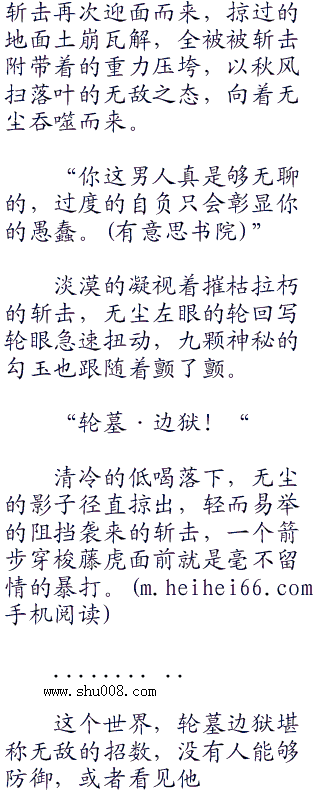 斩击再次迎面而来，掠过的
地面土崩瓦解，全被被斩击
附带着的重力压垮，以秋风
扫落叶的无敌之态，向着无
尘吞噬而来。
“你这男人真是够无聊
的，过度的自负只会彰显你
的愚蠢。(有意思书院)”
淡漠的凝视着摧枯拉朽
的斩击，无尘左眼的轮回写
轮眼急速扭动，九颗神秘的
勾玉也跟随着颤了颤。
“轮墓·边狱！“
清冷的低喝落下，无尘
的影子径直掠出，轻而易举
的阻挡袭来的斩击，一个箭
步穿梭藤虎面前就是毫不留
情的暴打。(m.heihei66.com
手机阅读)
........ ..
www.shu008.com
这个世界，轮墓边狱堪
称无敌的招数，没有人能够
防御，或者看见他